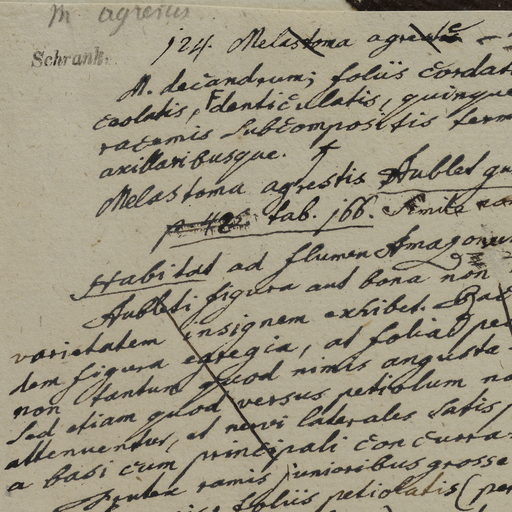 M. agrestis
124. Melastoma agreste
Schrank.
M. decandrum; foliis cordat
ceolatis, denticulatis, quinque
racemis subcompositis term
axillaribusque.
Melastoma agrestis Aublet gu
p. 425. tab. 166. Simile
Habitat ad flumen Amazonum
Aubleti figura aut bona non
varietatem insignem exhibet.
dem figura egregia, at folia pe
non tantum quod nimis angusta
sed etiam quod versus petiolum
attenuentur, et nervi laterales satis
a basi cum principali concurra-
Frutex ramis junioribus grosse
foliis petiolatis (per